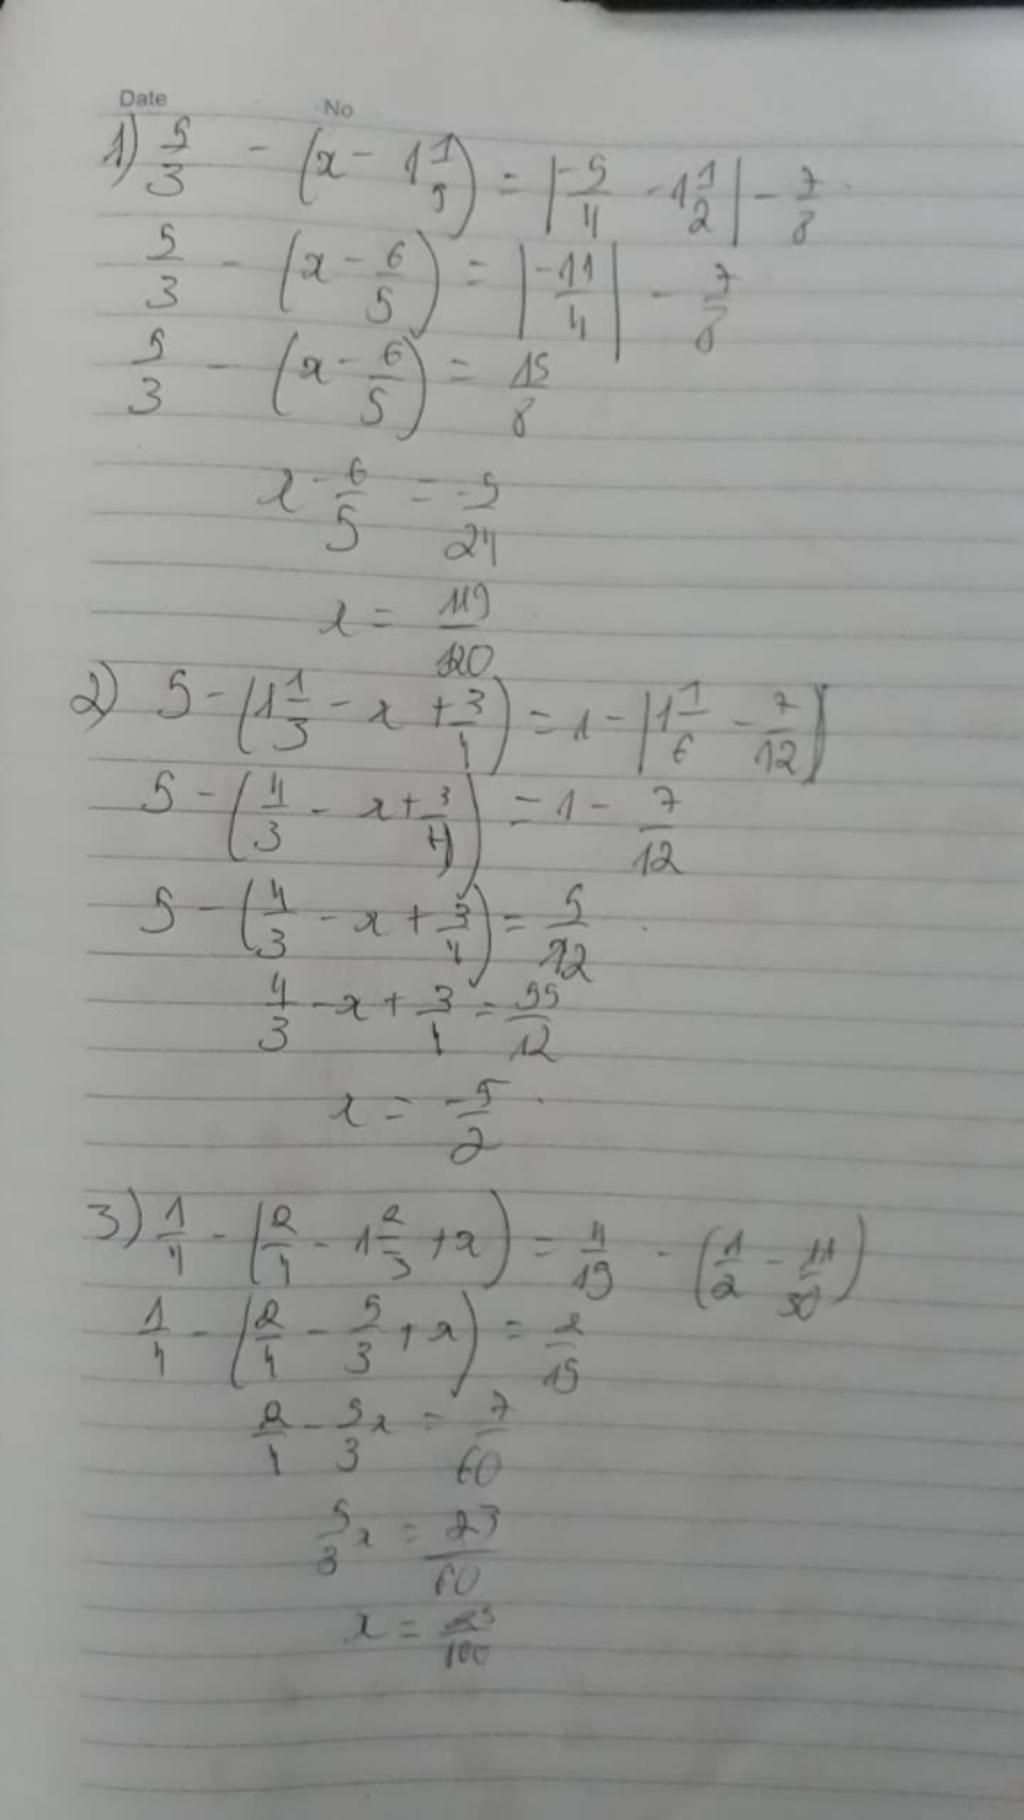 Date No
1) 5/3 - (x - 1 1/5) = |-5/4 - 1 1/2| - 7/8
5/3 - (x - 6/5) = |-11/4| - 7/8
5/3 - (x - 6/5) = 15/8
x - 6/5 = -5/24
x = 119/120
2) 5 - (1 1/3 - x + 3/4) = 1 - |1 1/6 - 7/12|
5 - (4/3 - x + 3/4) = 1 - 7/12
5 - (4/3 - x + 3/4) = 5/12
4/3 - x + 3/4 = 55/12
x = -5/2
3) 1/4 - (2/4 - 1 2/3 + x) = 4/15 - (1/2 - 11/30)
1/4 - (2/4 - 5/3 + x) = 2/15
2/4 - 5/3 x = 7/60
5/3 x = 23/60
x = 23/100